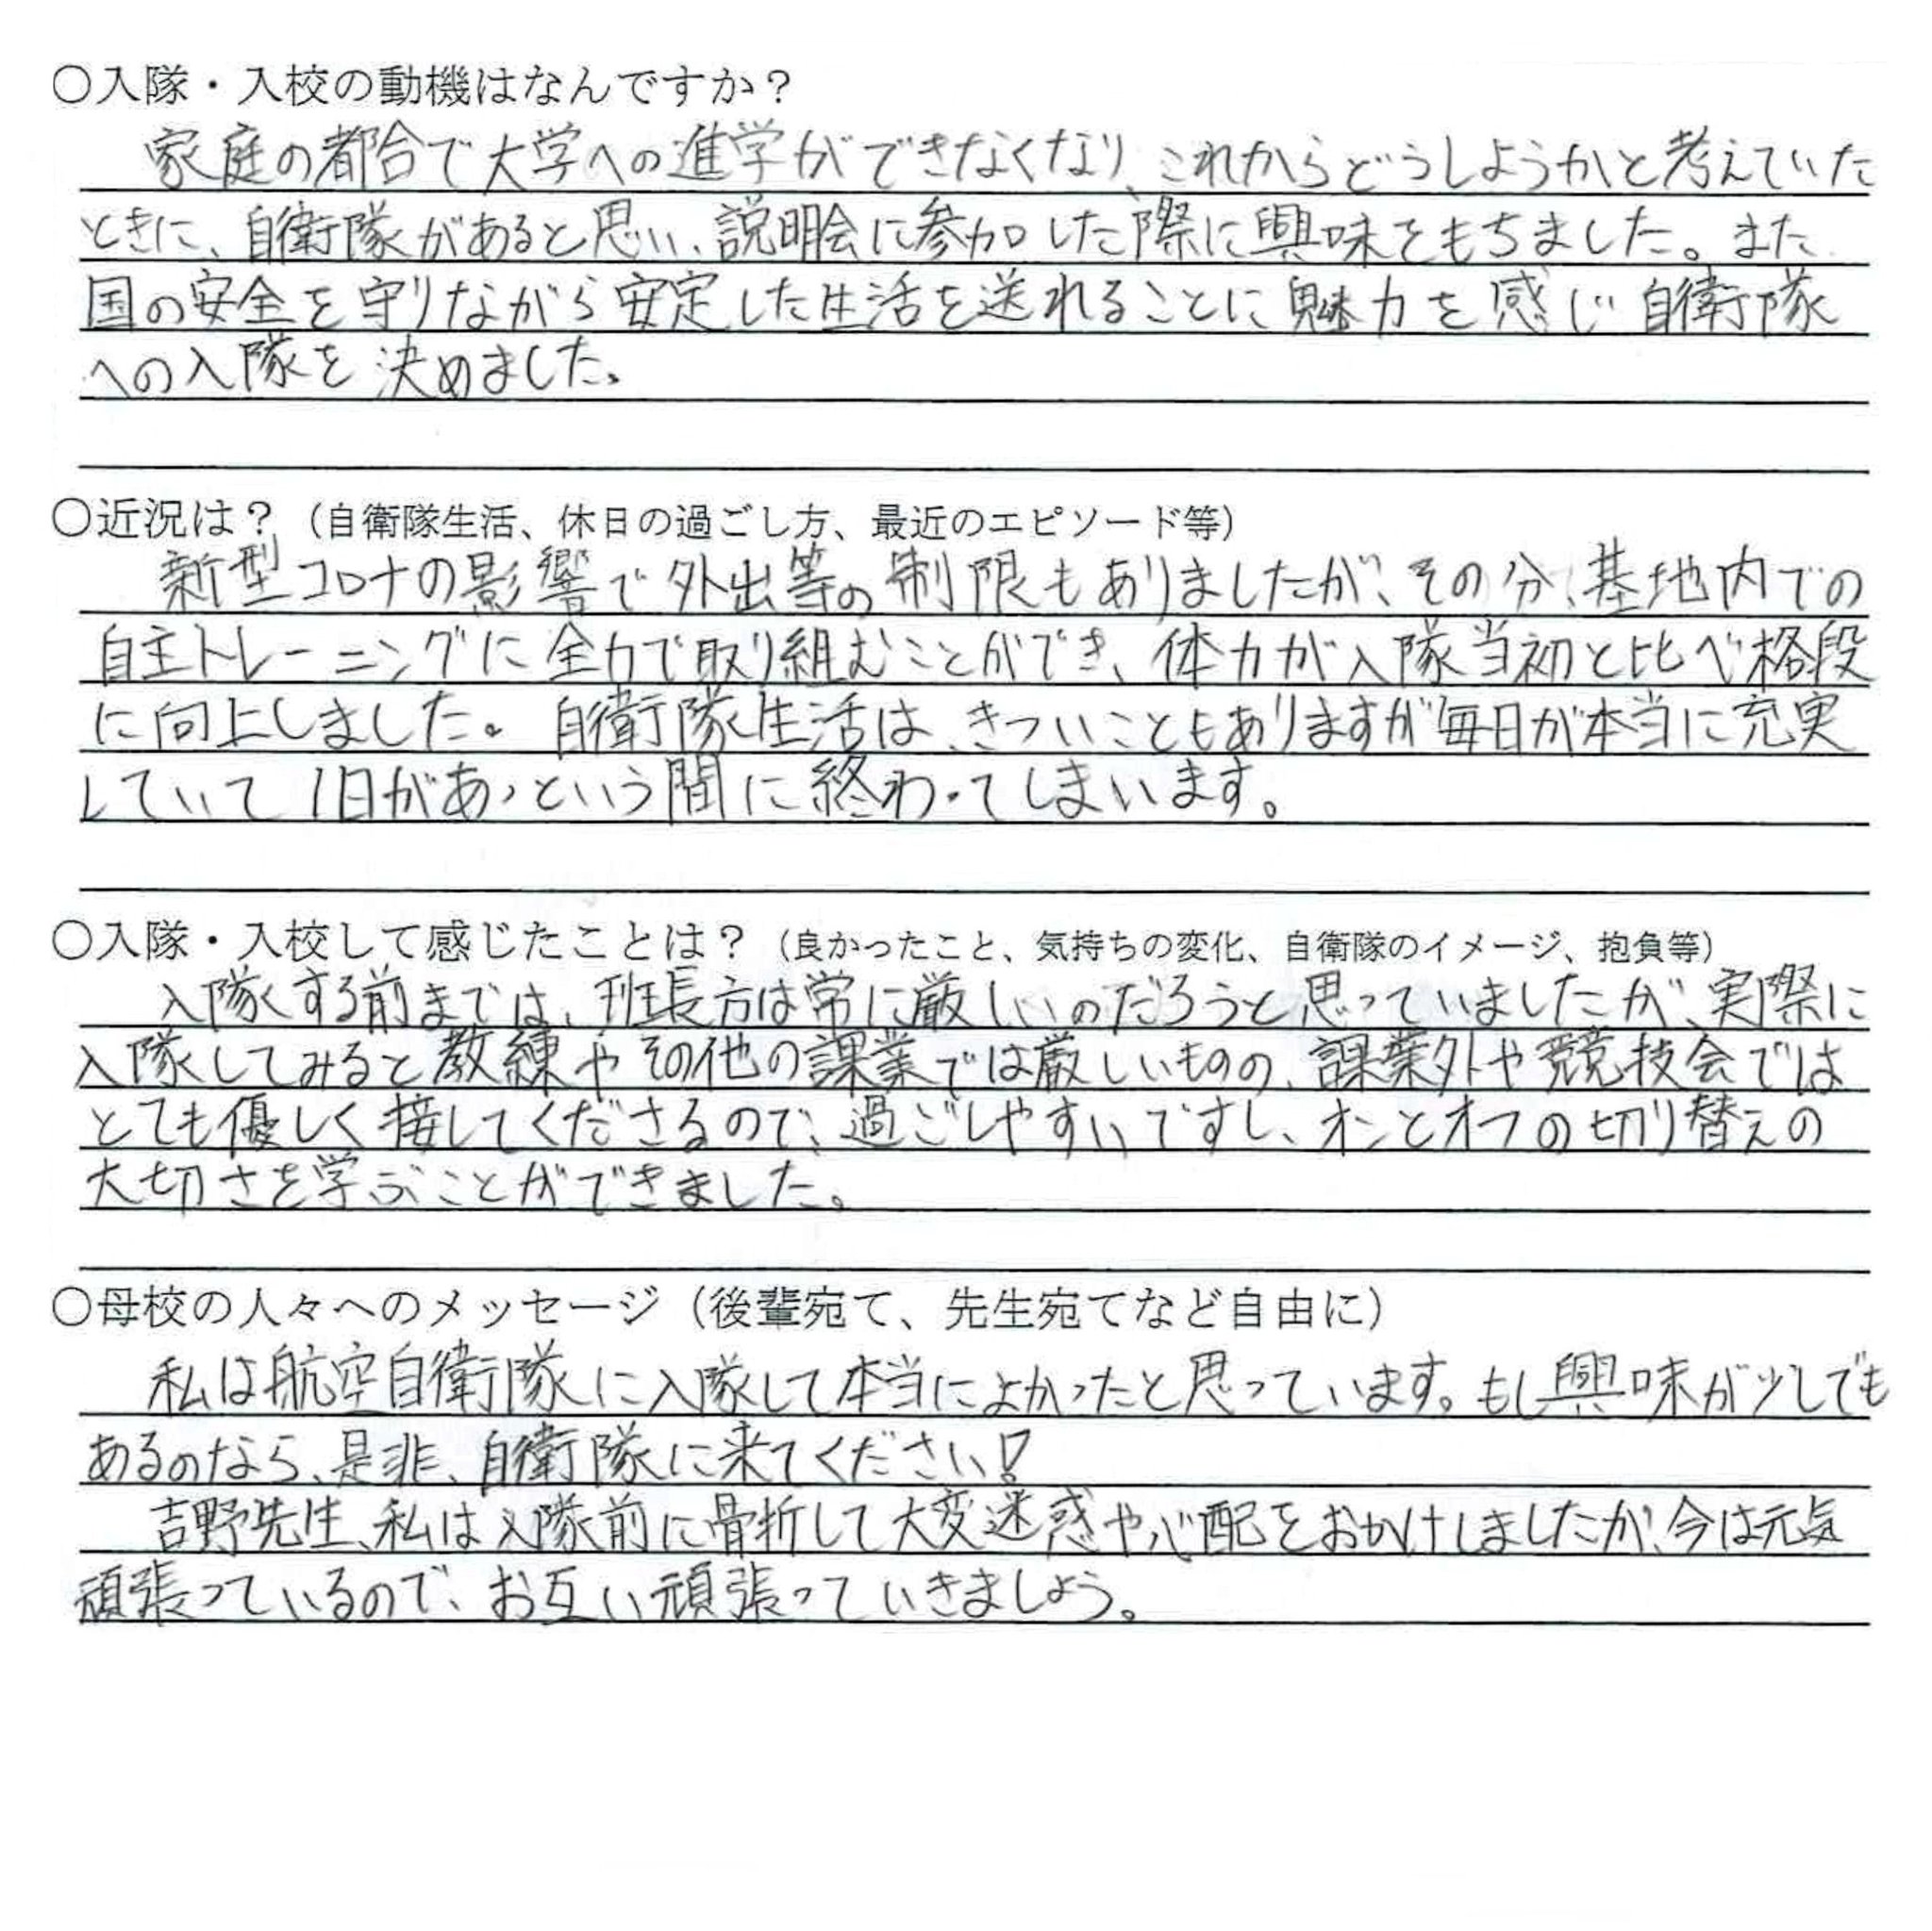 ○入隊・入校の動機はなんですか？
家庭の都合で大学への進学ができなくなり、これからどうしようかと考えていた
ときに、自衛隊があると思い、説明会に参加した際に興味をもちました。また
国の安全を守りながら安定した生活を送れることに魅力を感じ自衛隊
への入隊を決めました。
○近況は？（自衛隊生活、休日の過ごし方、最近のエピソード等）
新型コロナの影響で外出等の制限もありましたが、その分、基地内での
自主トレーニングに全力で取り組むことができ、体力が入隊当初と比べ格段
に向上しました。自衛隊生活は、きついこともありますが毎日が本当に充実
していて1日があっという間に終わってしまいます。
○入隊・入校して感じたことは？（良かったこと、気持ちの変化、自衛隊のイメージ、抱負等）
入隊する前までは、班長方は常に厳しいのだろうと思っていましたが、実際に
入隊してみると教練やその他の課業では厳しいものの、課業外や競技会では
とても優しく接してくださるので、過ごしやすいですし、オンとオフの切り替えの
大切さを学ぶことができました。
○母校の人々へのメッセージ（後輩宛て、先生宛てなど自由に）
私は航空自衛隊に入隊して本当によかったと思っています。もし興味が少しでも
あるのなら、是非、自衛隊に来てください！
吉野先生、私は入隊前に骨折して大変迷惑や心配をおかけしましたが、今は元気
頑張っているので、お互い頑張っていきましょう。